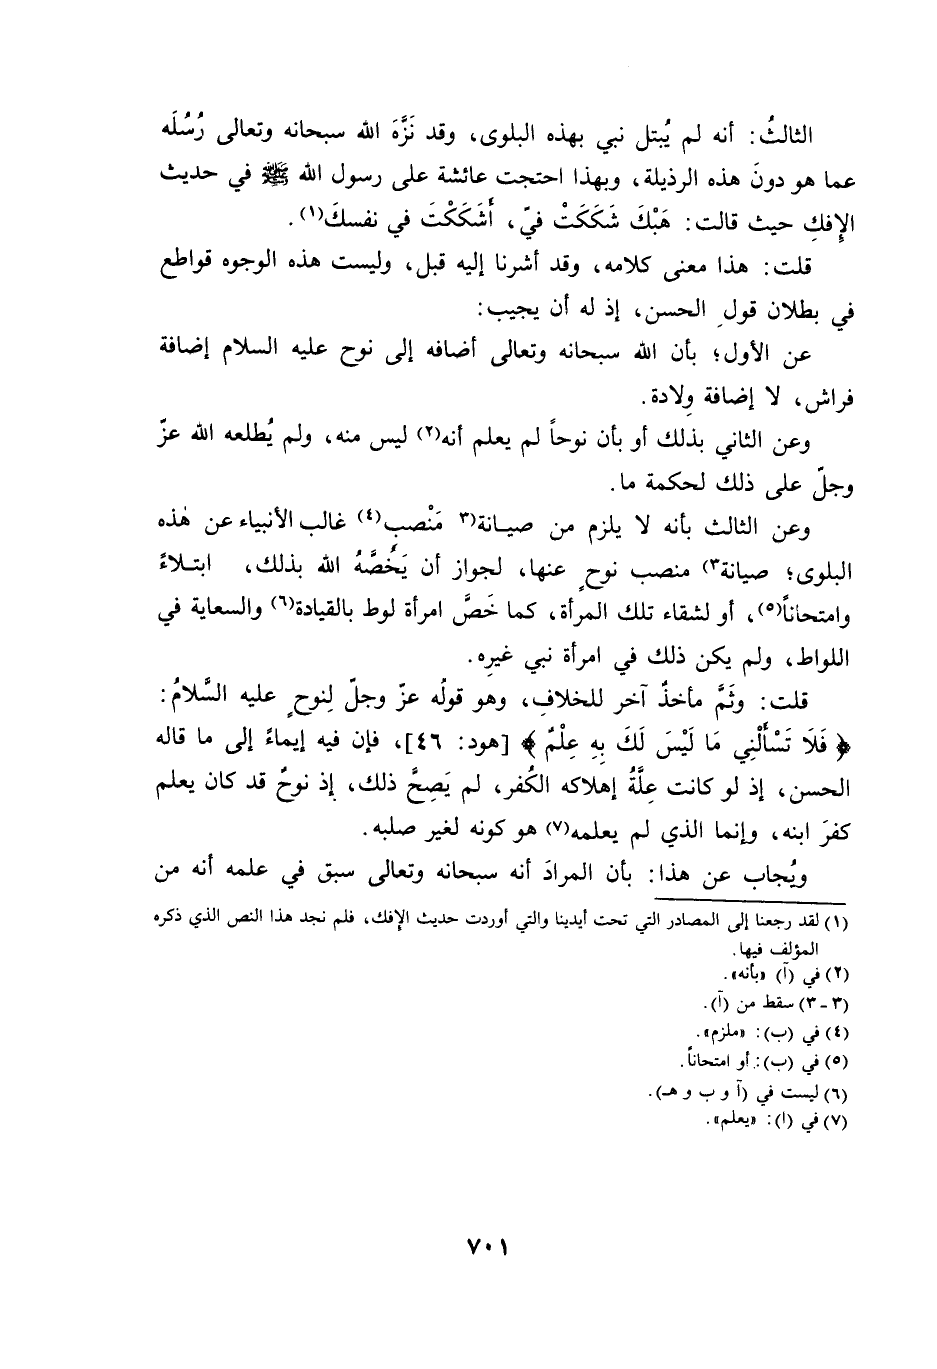 الثالثُ: أنه لم يُبتل نبي بهذه البلوى، وقد نَزَّهَ الله سبحانه وتعالى رُسُلَه
عما هو دونَ هذه الرذيلة، وبهذا احتجت عائشة على رسول الله ﷺ في حديث
الإِفكِ حيث قالت: هَبْكَ شَكَكَتْ فيّ، أَشَكَكْتَ في نفسكَ(١).
قلت: هذا معنى كلامه، وقد أشرنا إليه قبل، وليست هذه الوجوه قواطع
في بطلان قولِ الحسن، إذ له أن يجيب:
عن الأول؛ بأن الله سبحانه وتعالى أضافه إلى نوح عليه السلام إضافة
فراش، لا إضافة وِلادة.
وعن الثاني بذلك أو بأن نوحاً لم يعلم أنه(٢) ليس منه، ولم يُطلعه الله عزّ
وجلّ على ذلك لحكمة ما.
وعن الثالث بأنه لا يلزم من صيـانة(٣ مَنْصبِ(٤) غالب الأنبياء عن هٰذه
البلوى؛ صيانة٣) منصب نوحٍ عنها، لجواز أن يَخُصَّهُ الله بذلك، ابتـلاءً
وامتحاناً(٥)، أو لشقاء تلك المرأة، كما خَصَّ امرأة لوط بالقيادة(٦) والسعاية في
اللواط، ولم يكن ذلك في امرأة نبي غيرِه.
قلت: وثَمَّ مأخذٌ آخر للخلافِ، وهو قولُه عزّ وجلّ لِنوحٍ عليه السَّلامُ:
﴿ فَلَا تَسْأَلْنِي مَا لَيْسَ لَكَ بِهِ عِلْمٌ ﴾ [هود: ٤٦]، فإن فيه إيماءً إلى ما قاله
الحسن، إذ لو كانت عِلَّةُ إهلاكه الكُفر، لم يَصِحَّ ذلك، إذ نوحٌ قد كان يعلم
كفرَ ابنه، وإنما الذي لم يعلمه(٧) هو كونه لغير صلبه.
ويُجاب عن هذا: بأن المرادَ أنه سبحانه وتعالى سبق في علمه أنه من
(١) لقد رجعنا إلى المصادر التي تحت أيدينا والتي أوردت حديث الإفك، فلم نجد هذا النص الذي ذكره
المؤلف فيها.
(٢) في (آ) «بأنه».
(٣ - ٣) سقط من (آ).
(٤) في (ب): «ملزم».
(٥) في (ب): أو امتحاناً.
(٦) ليست في (آ و ب و هـ).
(٧) في (ا): «يعلم».
٧٠١